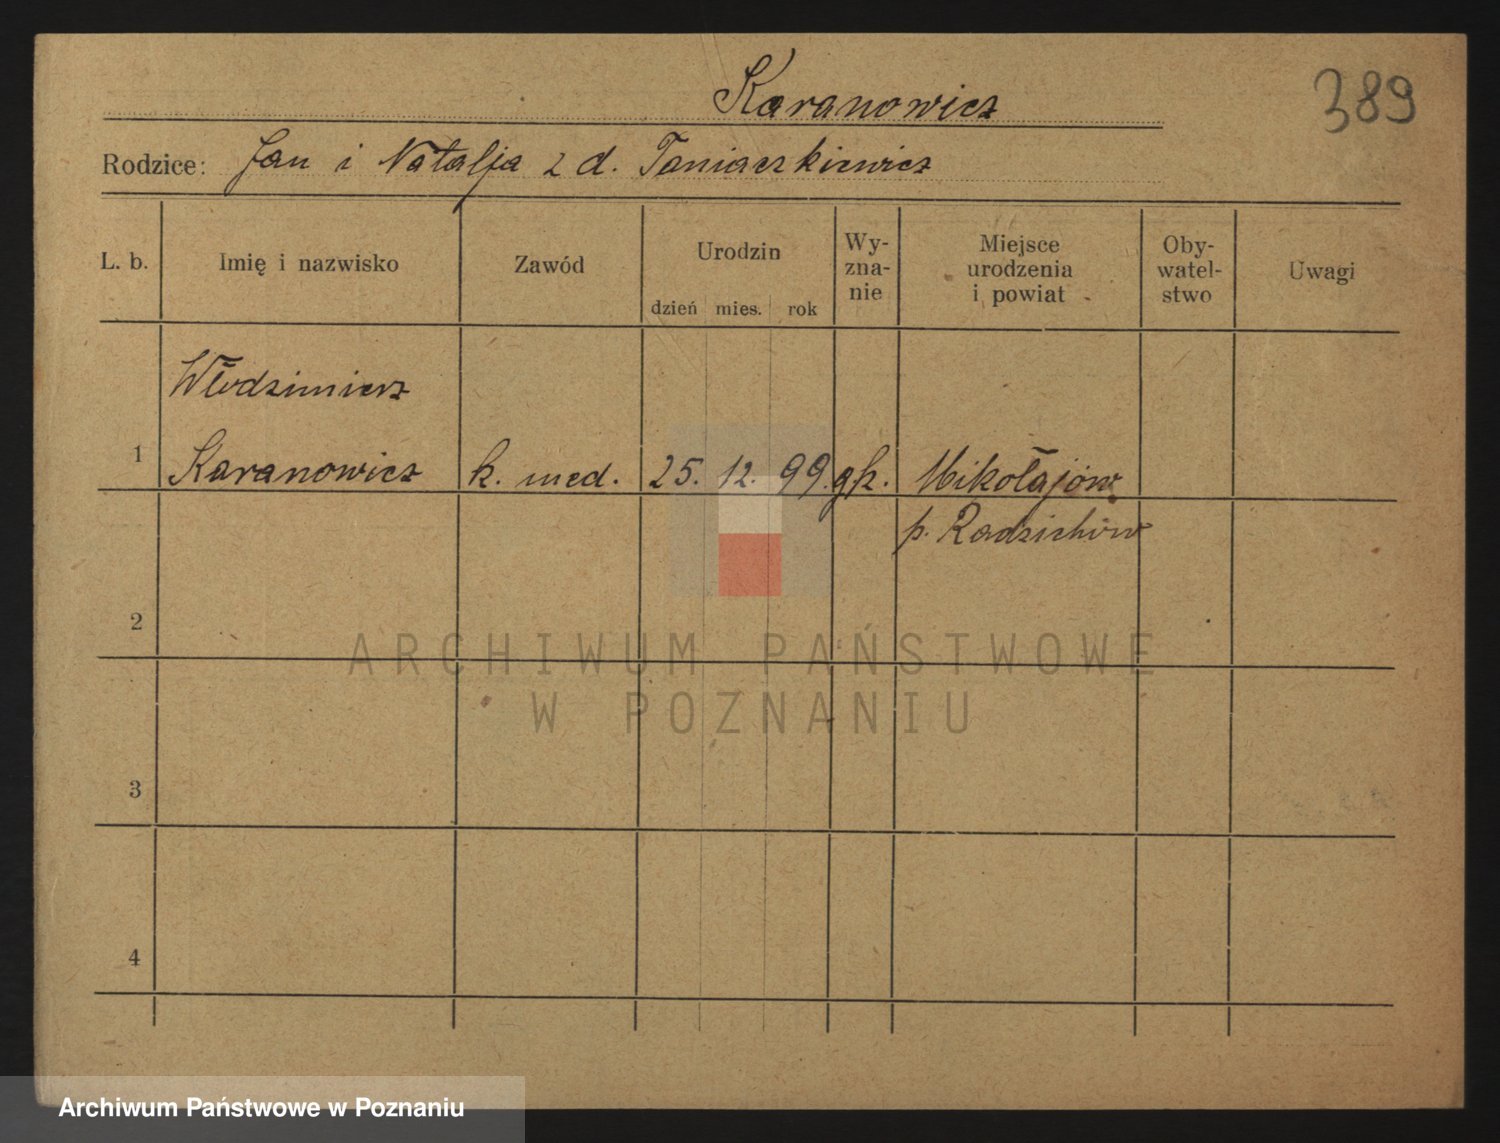 389
Karanowicz
Rodzice: Jan i Natalja z d. Taniaczkiewicz
L. b.
Imię i nazwisko
Zawód
Urodzin
dzień mies. rok
Wy-
zna-
nie
Miejsce
urodzenia
i powiat
Oby-
watel-
stwo
Uwagi
Włodzimierz
1 Karanowicz k. med. 25. 12. 99. gk. Mikołajów
p. Radziechów
2
ARCHIWUM PAŃSTWOWE
W POZNANIU
3
4
Archiwum Państwowe w Poznaniu